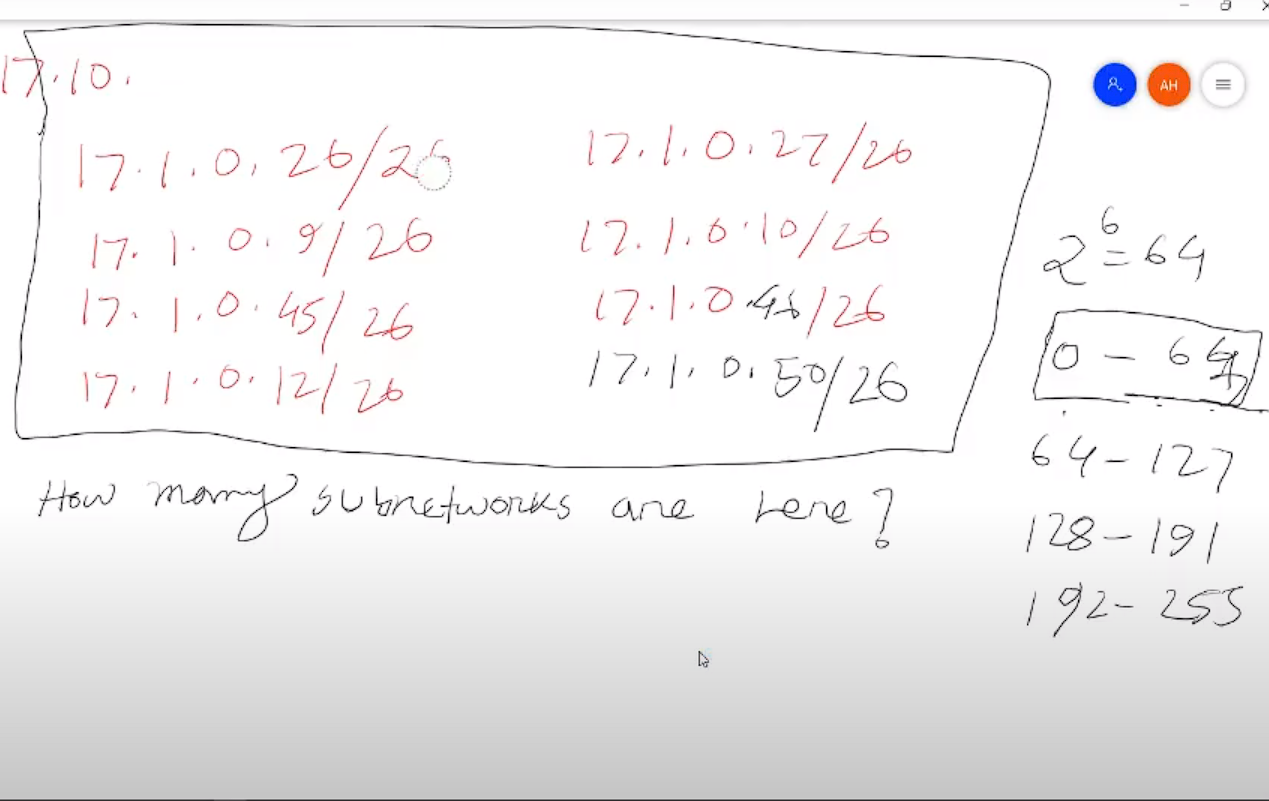 17.10.
17.1.0.26/26 17.1.0.27/26
17.1.0.9/26 17.1.0.10/26
17.1.0.45/26 17.1.0.46/26
17.1.0.12/26 17.1.0.50/26
How many subnetworks are here?
AH
2^6=64
0 - 
64-127
128-191
192-255